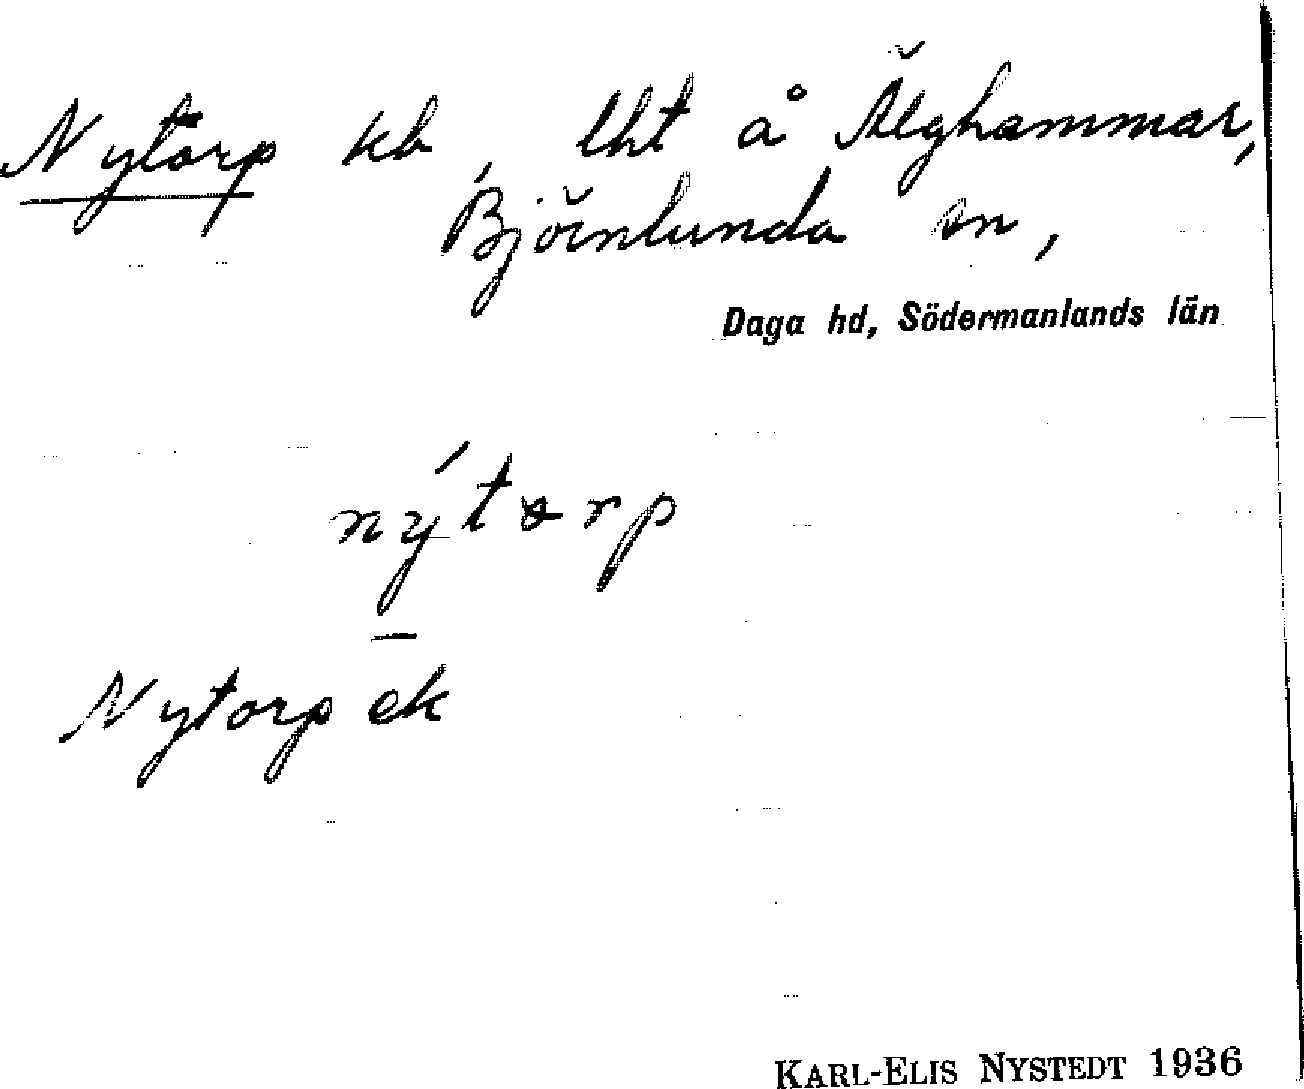 Nytorp kb, lht å Älghammar,
Björnlunda sn,
Daga hd, Södermanlands län
nýtɷrp
Nytorp ek
KARL-ELIS NYSTEDT 1936